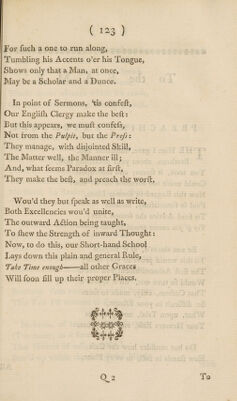 ( 123 )
For ſuch a one to run along,
Tumbling his Accents o'er his Tongue,
Shows only that a Man, at once,
May be a Scholar and a Dunce.
In point of Sermons, 'tis confeſt,
Our Engliſh Clergy make the beſt:
But this appears, we muſt confeſs,
Not from the Pulpit, but the Preſs:
They manage, with disjointed Skill,
The Matter well, the Manner ill;
And, what ſeems Paradox at firſt,
They make the beſt, and preach the worſt.
Wou'd they but ſpeak as well as write,
Both Excellencies wou'd unite,
The outward Action being taught,
To ſhew the Strength of inward Thought:
Now, to do this, our Short-hand School
Lays down this plain and general Rule,
Take Time enough——all other Graces
Will ſoon fill up their proper Places.
Q 2 To